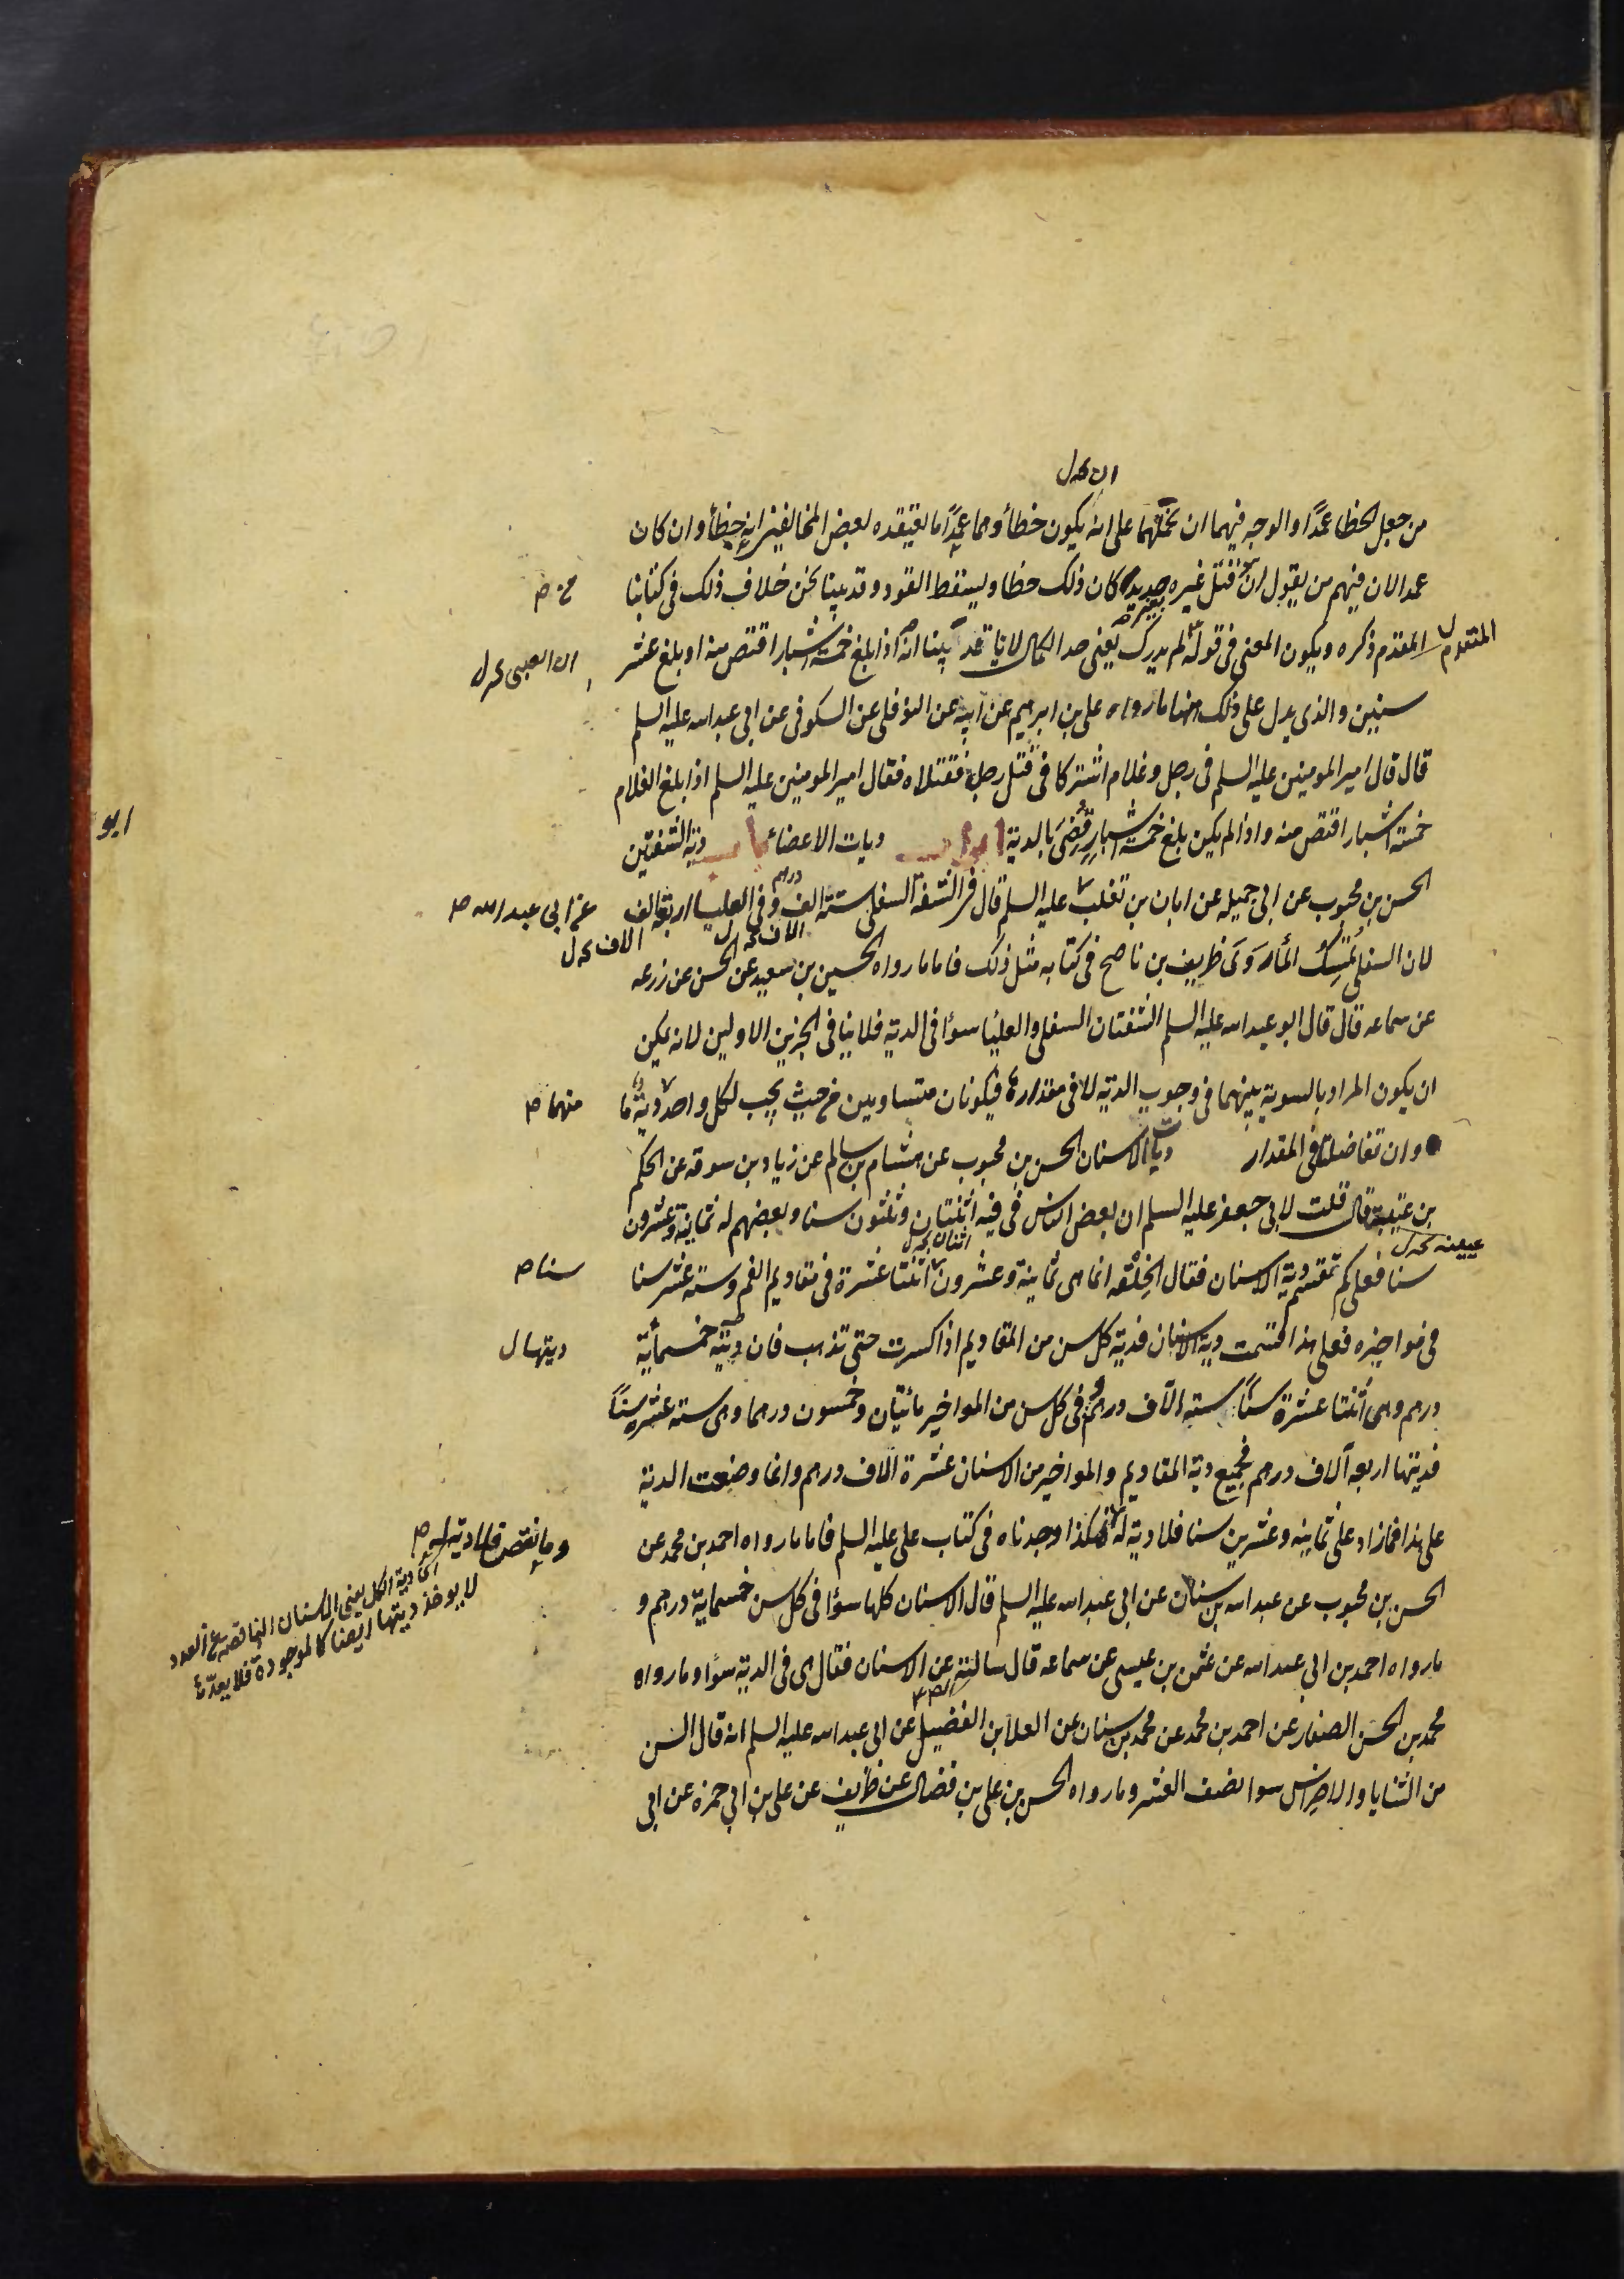 ان یحل
من جعل الخطا عمدًا والوجه فیهما ان نحملهما علی انه یکون خطأ وهما عمدًا ما یعتقده بعض المخالفین انه خطأ وان کان
عمدا لان فیهم من یقول ان من قتل غیره بغیر حدید کان ذلک خطا ویسقط القود وقد بینا نحن خلاف ذلک فی کتابنا
المتقدم ذکره ویکون المعنی فی قوله لم یدرک یعنی حد الکمال لانا قد بینا انه اذا بلغ خمسة اشبار اقتص منه او بلغ عشر
المتقدم
سنین والذی یدل علی ذلک ایضا ما رواه علی بن ابرهیم عن ابیه عن النوفلی عن السکونی عن ابی عبد الله علیه السلم
قال قال امیر المومنین علیه السلم فی رجل وغلام اشترکا فی قتل رجل فقتلاه فقال امیر المومنین علیه السلم اذا بلغ الغلام
خمسة اشبار اقتص منه واذا لم یکن بلغ خمسة اشبار قُضِیَ بالدیة ابواب دیات الاعضاء باب دیة الشفتین
ابو
الحسن بن محبوب عن ابی جمیله عن ابان بن تغلب علیه السلم قال فی الشفة السفلی ستة الف وفی العلیا اربعة الف
درهم
عن ابی عبد الله ص
الاف
الاف
لان السفلی تُمسِکُ الماء وَرَوَی ظریف بن ناصح فی کتابه مثل ذلک فاما ما رواه الحسین بن سعید عن الحسن عن زرعه
عن سماعه قال قال ابو عبد الله علیه السلم الشفتان السفلی والعلیا سواء فی الدیة فلا ینافی الخبرین الاولین لانه یمکن
ان یکون المراد بالسویة بینهما فی وجوب الدیة لا فی مقدارها فیکونان متساویین من حیث یجب لکل واحد دیة ما
منهما ص
وان تفاضلتا فی المقدار دیات الاسنان الحسن بن محبوب عن هشام بن سالم عن زیاد بن سوقه عن الحکم
بن عتیبة قال قلت لابی جعفر علیه السلم ان بعض الناس فی فیه اثنتان وثلثون سنا وبعضهم له ثمانیة وعشرون
عیینه
سنا فعلی کم تقسم دیة الاسنان فقال الخلقه انما هی ثمانیة وعشرون اثنتا عشرة فی مقادیم الفم وستة عشر سنا
سنا ص
فی مواخیره فعلی هذا قسمت دیة الاسنان فدیة کل سن من المقادیم اذا کسرت حتی تذهب فان دیته خمسمأیة
دیتها ل
درهم وهی اثنتا عشرة سنًا ستة الآف درهم وفی کل سن من المواخیر مائتان وخمسون درهما وهی ستة عشر سنًا
فدیتها اربعه آلاف درهم فجمیع دیة المقادیم والمواخیر من الاسنان عشرة الاف درهم وانما وضعت الدیة
علی هذا فما زاد علی ثمانیة وعشرین سنا فلا دیة له هکذا وجدناه فی کتاب علی علیه السلم فاما ما رواه احمد بن محمد عن
وما نقص فلا دیة له ص
الحسن بن محبوب عن عبد الله بن سنان عن ابی عبد الله علیه السلم قال الاسنان کلها سواء فی کل سن خمسمایة درهم و
ما رواه احمد بن ابی عبد الله عن عثمن بن عیسی عن سماعه قال سالته عن الاسنان فقال هی فی الدیة سواء وما رواه
محمد بن الحسن الصفار عن احمد بن محمد عن محمد بن سنان عن العلا بن الفضیل عن ابی عبد الله علیه السلم انه قال السن
من الثنایا والاضراس سوا نصف العشر وما رواه الحسن بن علی بن فضال عن ظریف عن علی بن ابی حمزه عن ابی
دیة الکل یعنی الاسنان الناقصة من العدد
لا یوخذ دیتها ایضا کالموجودة فلا یعد